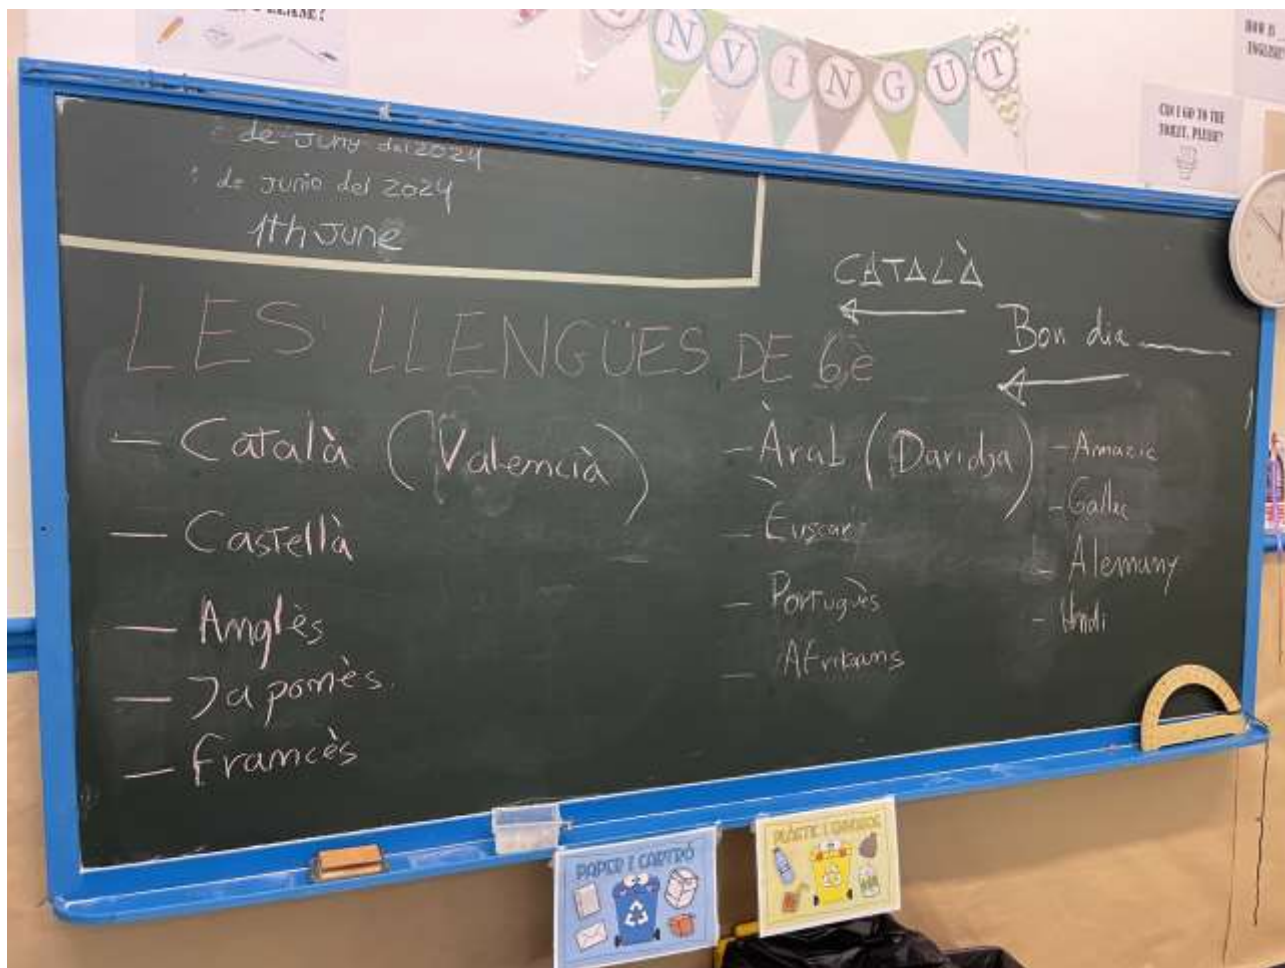 ENVINGUT
CAN I GO TO THE
TOILET, PLEASE?
de juny del 2024
de junio del 2024
1th June
CATALÀ
LES LLENGÜES DE 6è
Bon dia
- Català (Valencià)
- Castellà
- Anglès
- Japonès
- Francès
- Àrab (Daridja)
- Euscar
- Portuguès
- Afrikans
- Amazic
- Gallec
- Alemany
- Hindi
PAPER I CARTRÓ
PLÀSTIC I ENVASOS